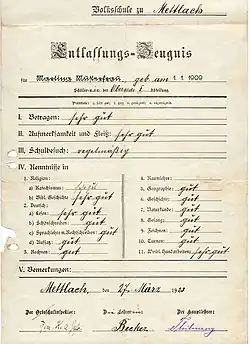 Volksschule zu Mettlach
Entlassungs-Zeugnis
für geb am 1 1 1909
Schüler der Abteilung
I. Betragen: sehr gut
II. Aufmerksamkeit und Fleiß: sehr gut
III. Schulbesuch: regelmäßig
IV. Kenntnisse in
1. Religion:
a) Katechismus: sehr gut
b) Bibl. Geschichte: sehr gut
2. Deutsch:
a) Lesen: sehr gut
b) Schönschreiben: gut
c) Sprachlehre u. Rechtschreiben: gut
d) Aufsatz: gut
3. Rechnen: gut
4. Raumlehre:
5. Geographie: gut
6. Geschichte: gut
7. Naturkunde: gut
8. Gesang: gut
9. Zeichnen: gut
10. Turnen: gut
11. Weibl. Handarbeiten: gut
V. Bemerkungen:
Mettlach, den 27. März 1923
Der Ortsschulinspektor:
Der Hauptlehrer:
Becker